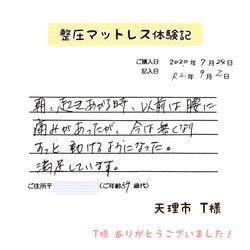 整圧マットレス体験記
ご購入日 2020年7月24日
記入日 R2年9月2日
朝、起きあがる時、以前は腰に
痛みがあったが、今は無くなり
すっと動けるようになった。
満足しています。
ご住所〒 (ご年齢54歳代)
天理市 T様
T様 ありがとうございました!